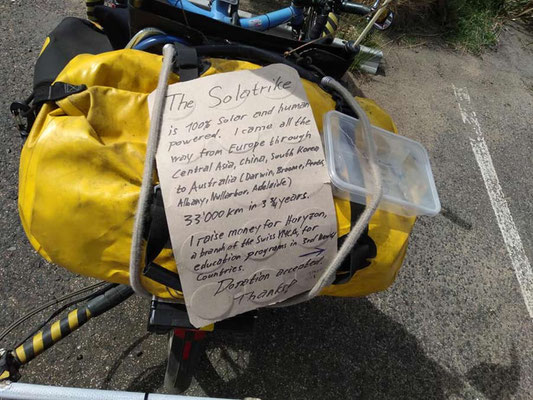 The Solatrike
is 100% solar and human
powered. I came all the
way from Europe through
Central Asia, China, South Korea
to Australia (Darwin, Broome, Perth,
Albany, Nullarbor, Adelaide)
33'000 km in 3 ¾ years.
I raise money for Horyzon,
a branch of the Swiss YMCA, for
education programs in 3rd World
Countries.
Donation accepted!
Thanks!